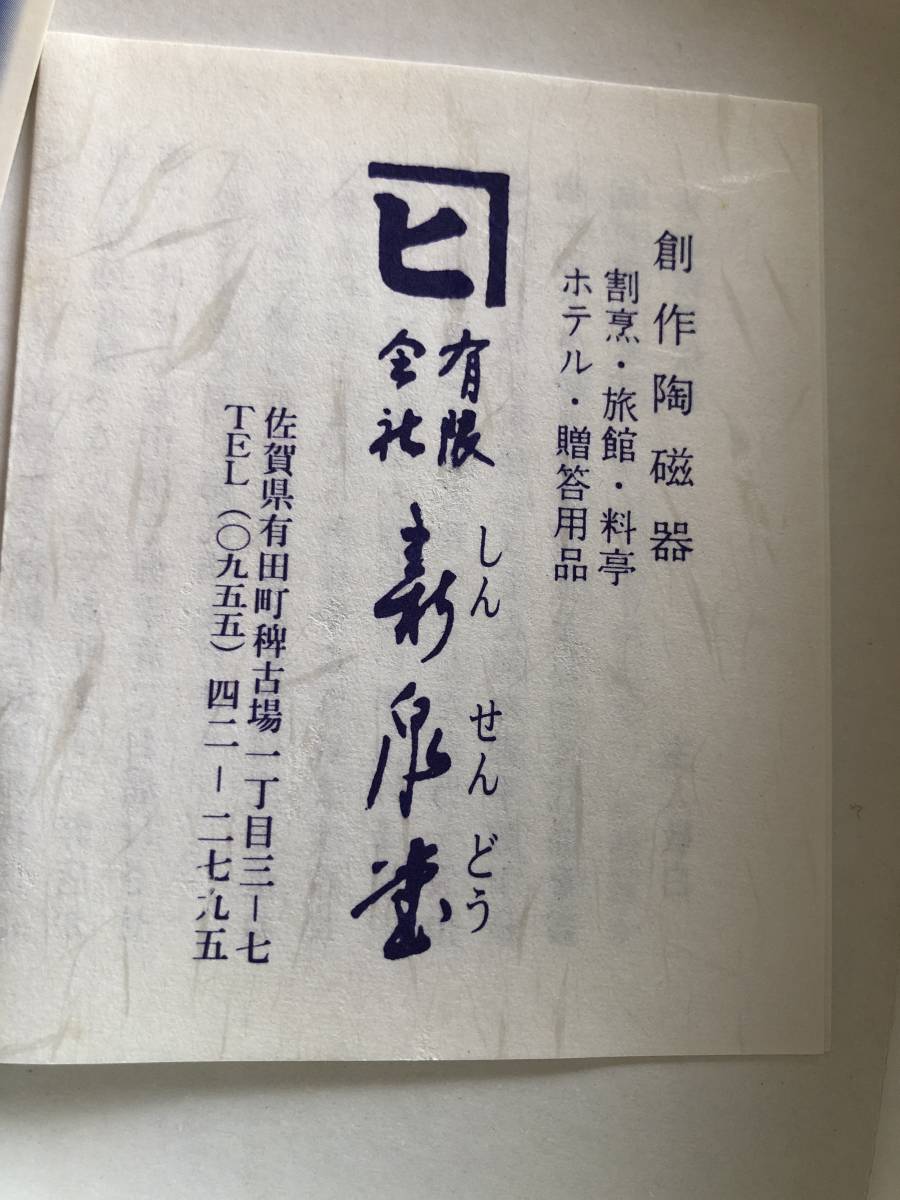 創作陶磁器
割烹・旅館・料亭
ホテル・贈答用品
ヒ
有限
会社
新泉堂
しんせんどう
佐賀県有田町稗古場一丁目三−七
TEL(〇九五五)四二−二七九五